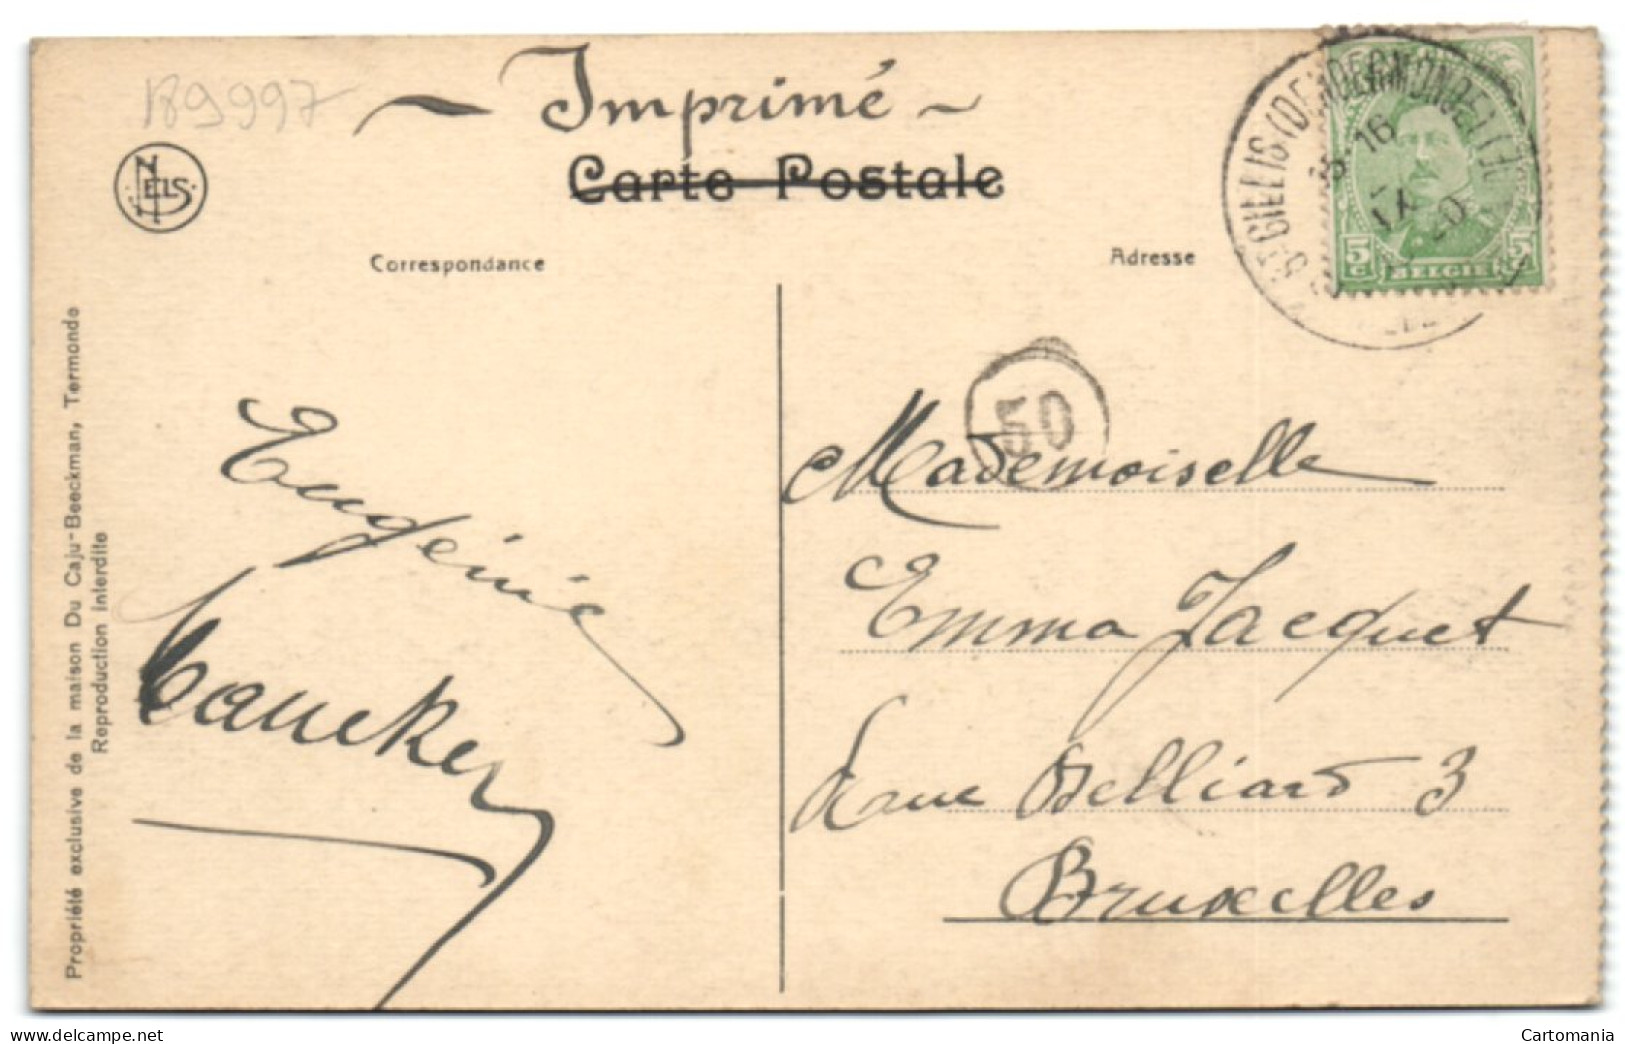 189997
~ Imprimé ~
Carte Postale
NELS
Correspondance
Adresse
ST GILLIS (DENDERMONDE)
15-16
20
5c BELGIË 5c
50
Mademoiselle
Emma Jacquet
Rue Belliard 3
Bruxelles
Eugénie
Propriété exclusive de la maison Du Caju-Beeckman, Termonde
Reproduction interdite
www.delcampe.net
Cartomania